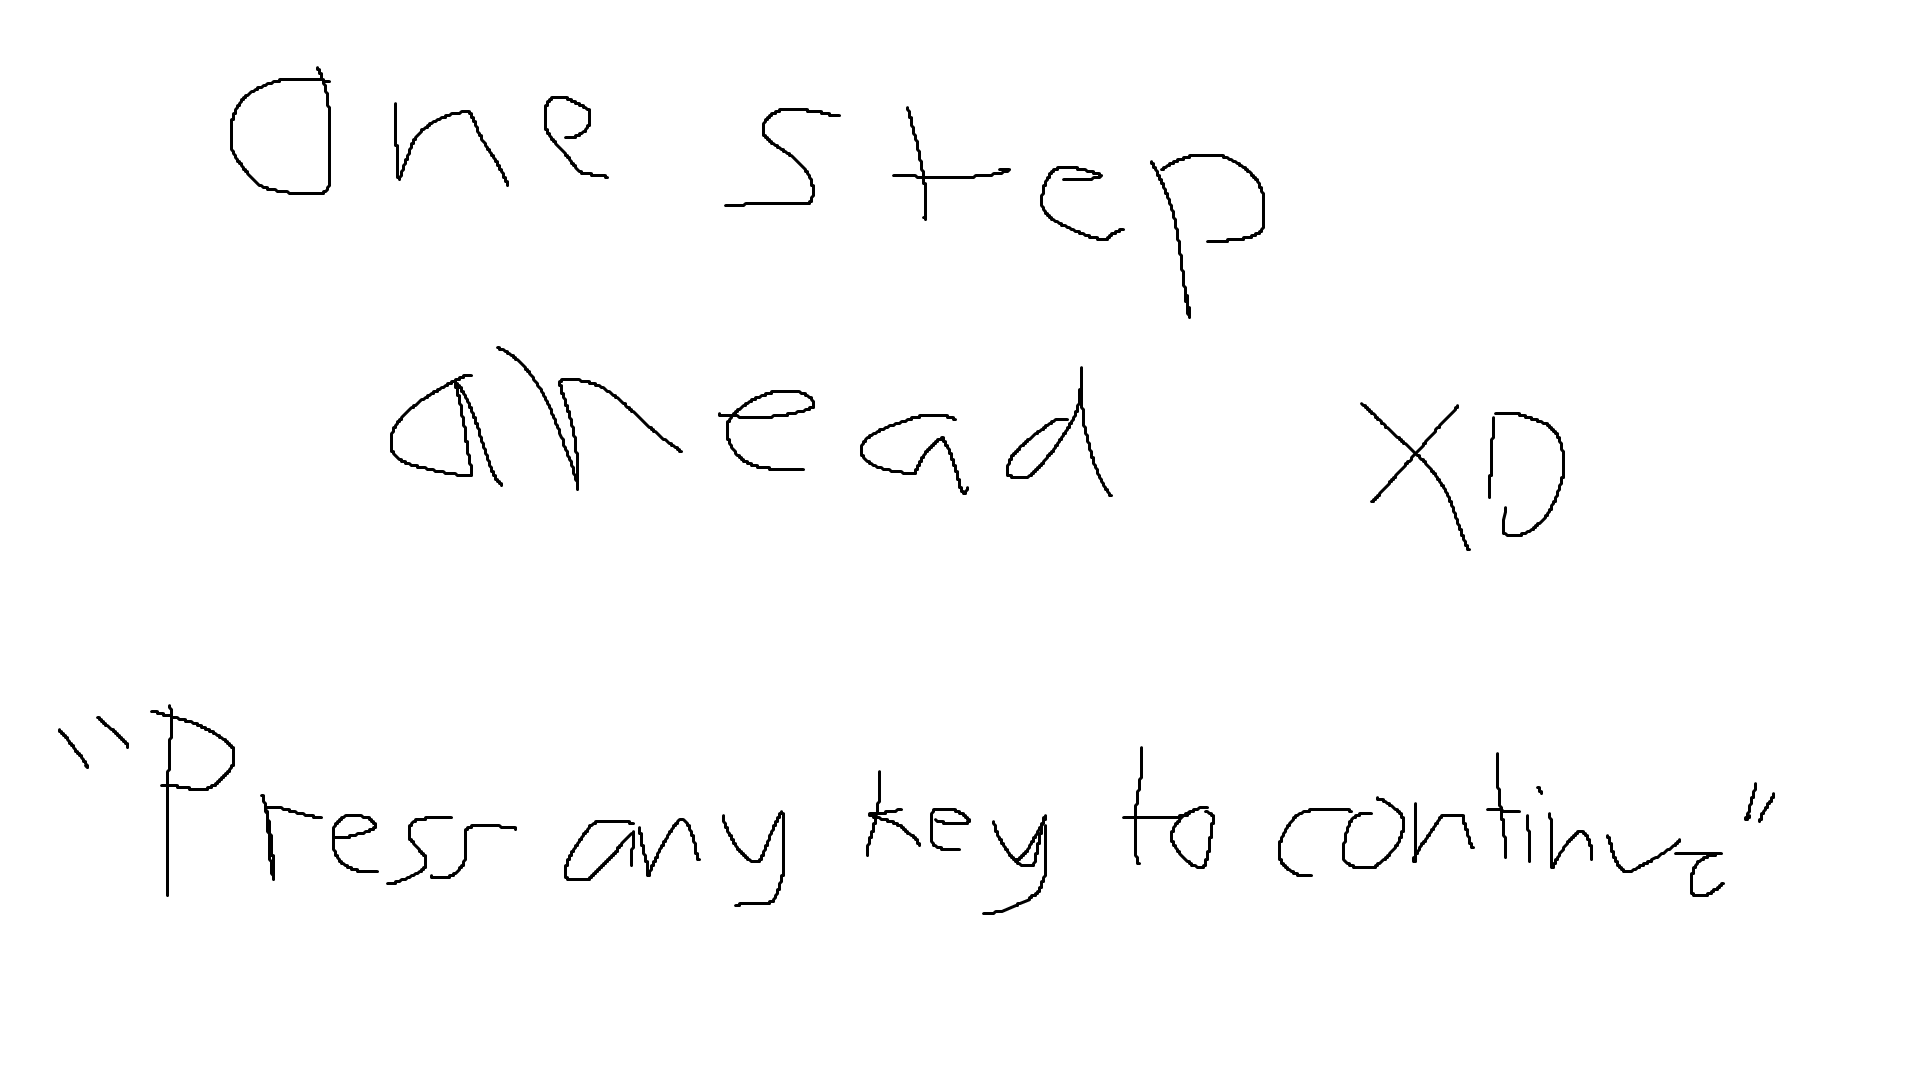 One step
ahead XD
"Press any key to continue"